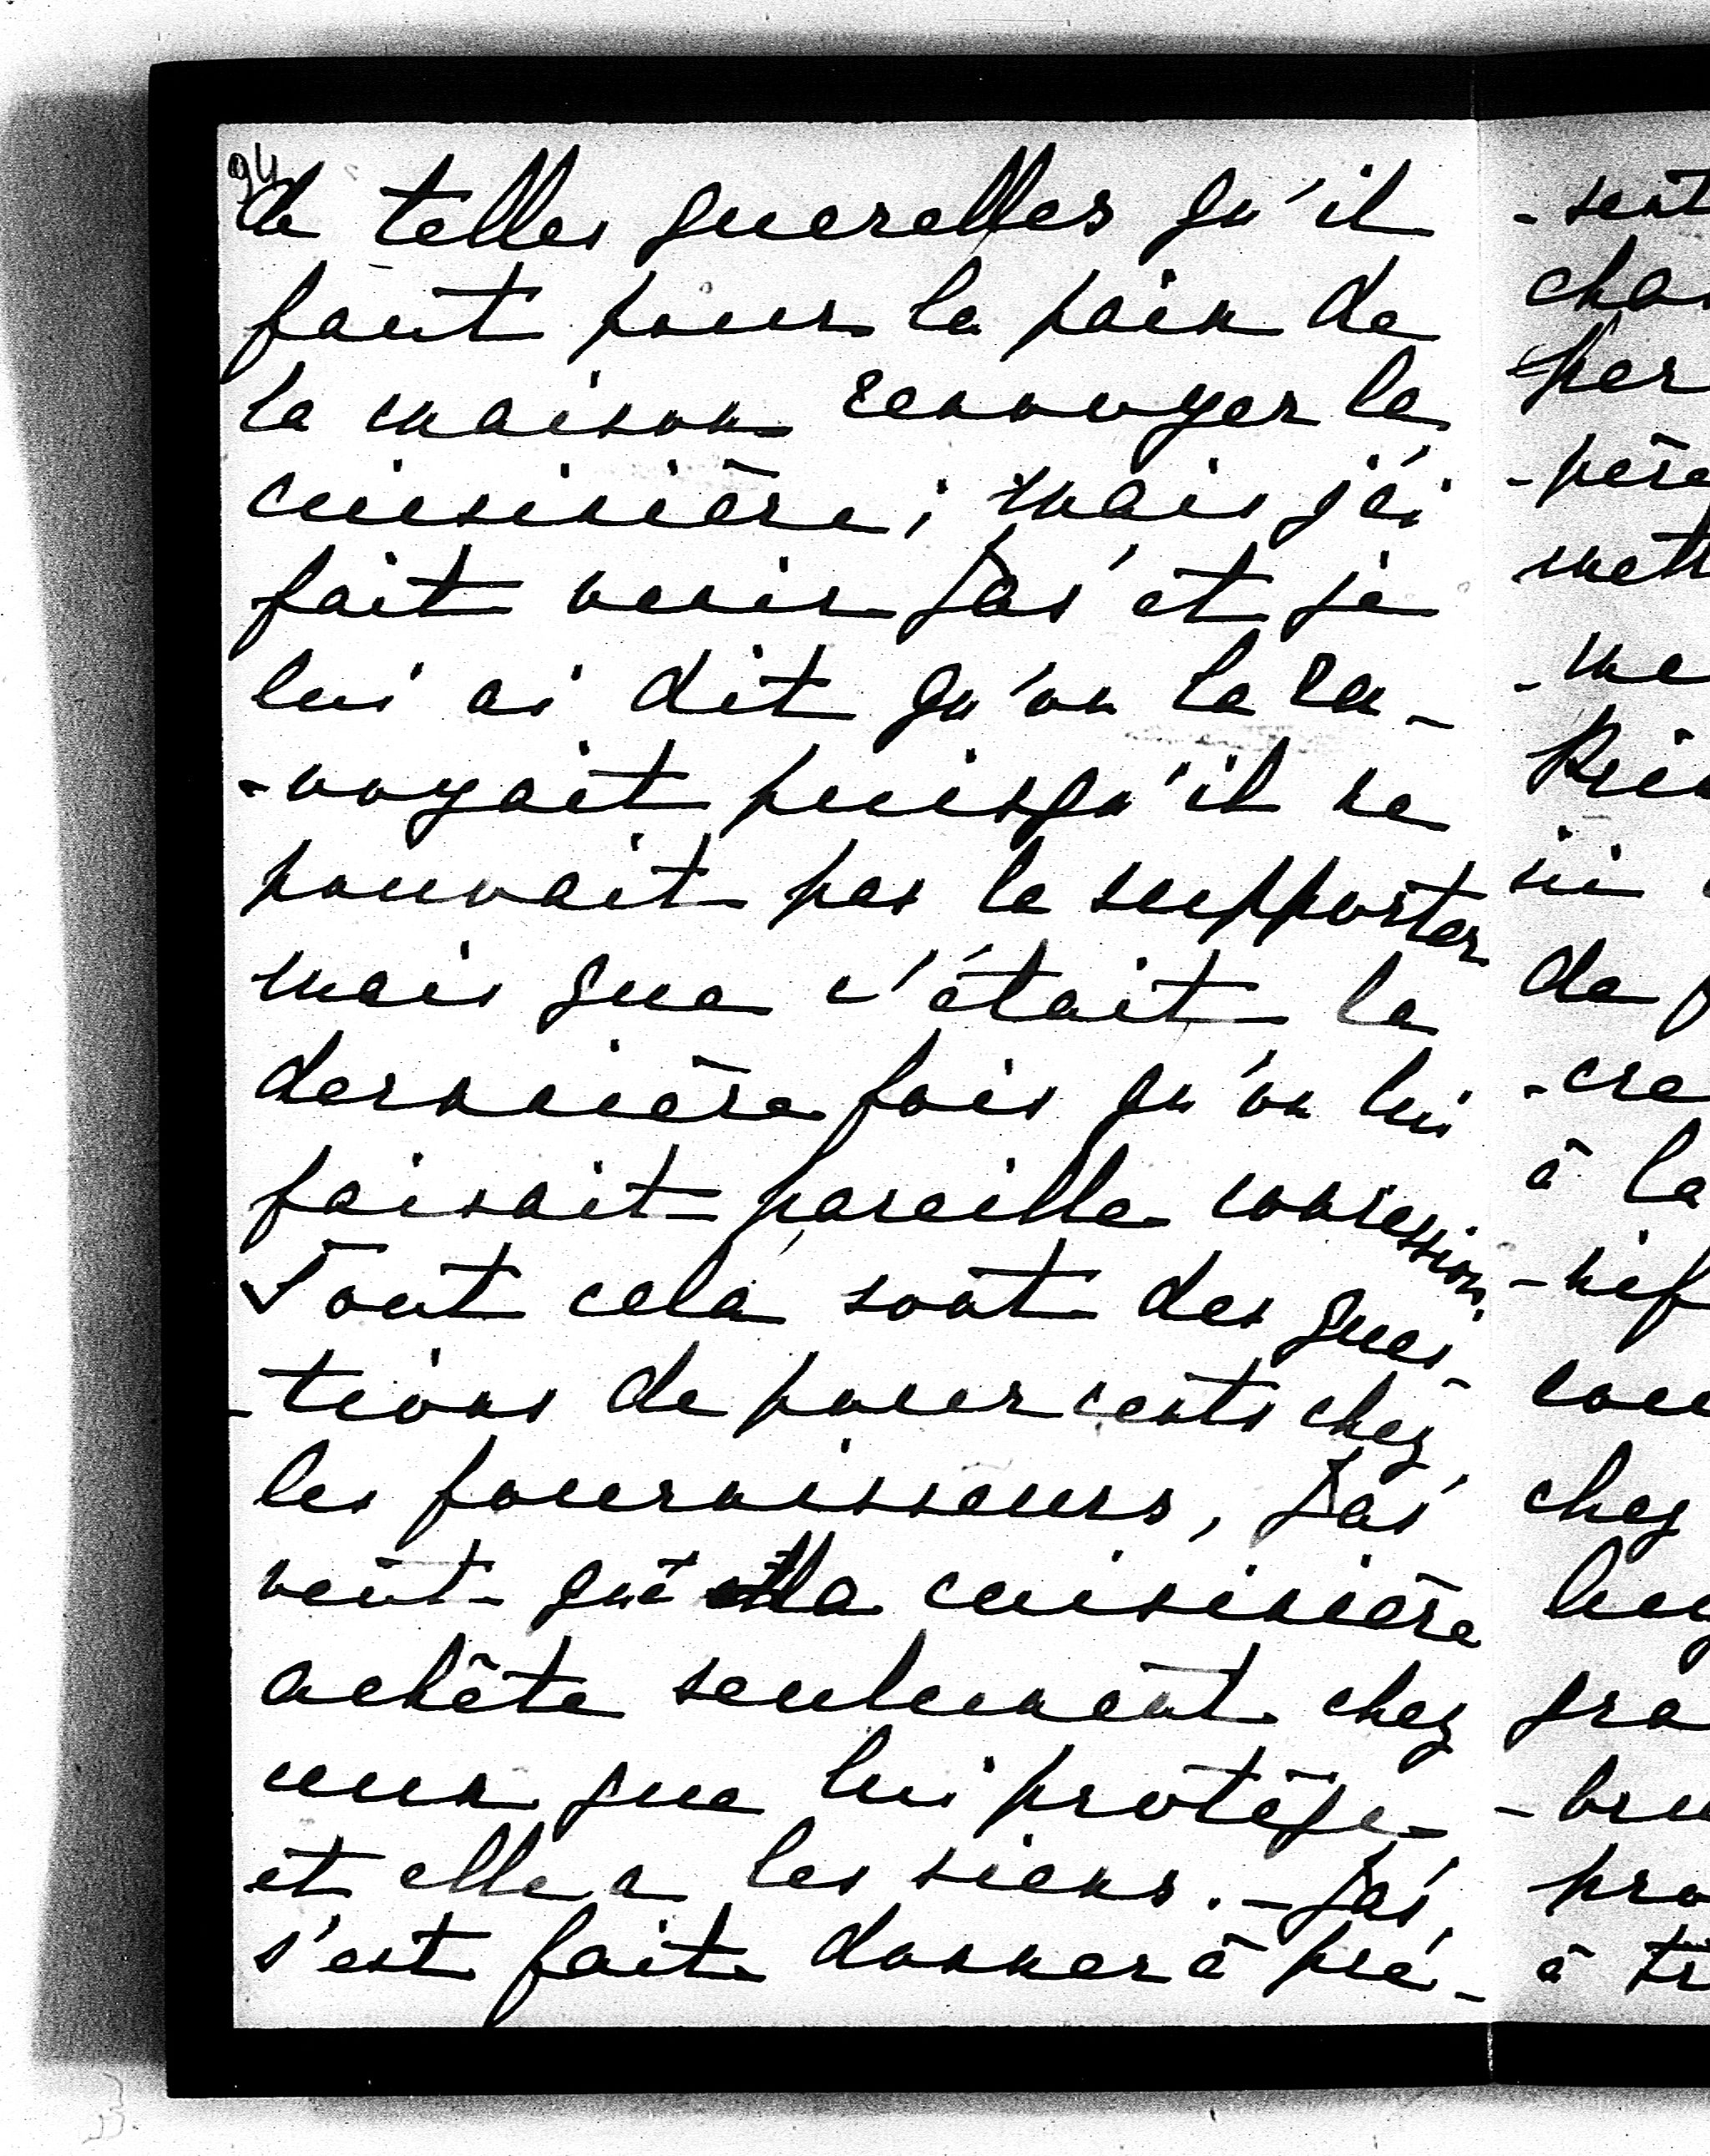 94
de telles querelles qu'il
faut pour la paix de
la maison renvoyer la
cuisinière; mais j'ai
fait venir et je
lui ai dit qu'on la ren-
-voyait puisqu'il ne
pouvait pas la supporter
mais que c'était la
dernière fois qu'on lui
faisait pareille concession.
Tout cela sont des ques-
-tions de pour cents chez
les fournisseurs,
veut que la cuisinière
achète seulement chez
ceux que lui protège
et elle a les siens. -
s'est faite donner à pré-
-sent